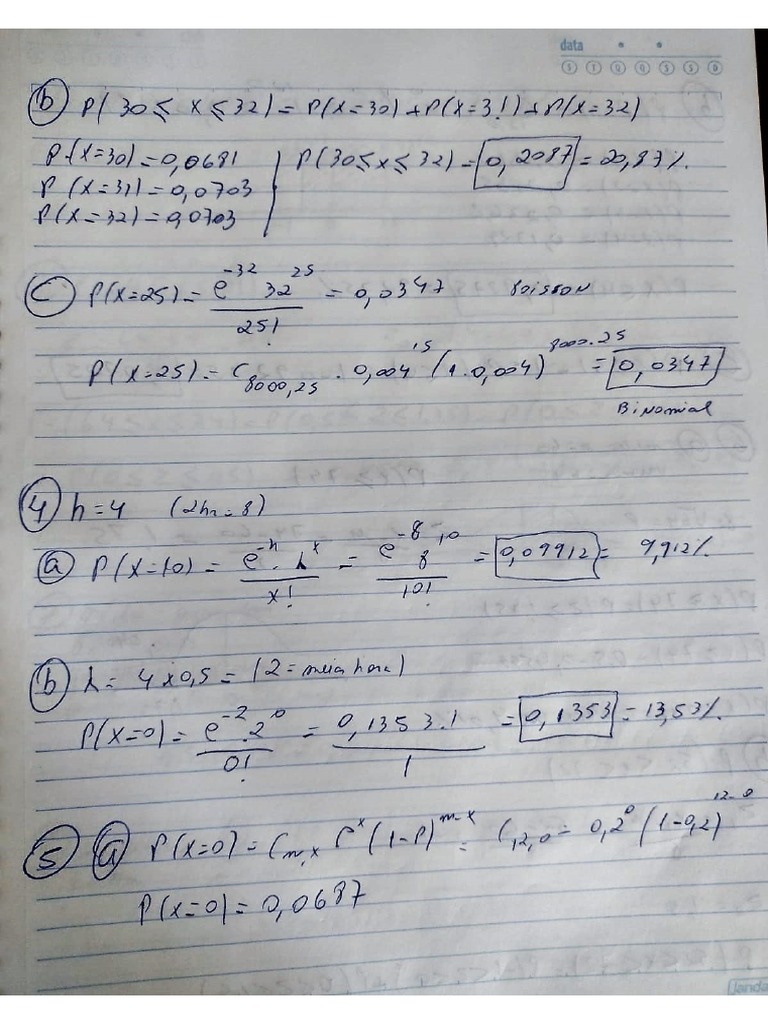 data
S T Q Q S S D
b) P(30 ≤ x ≤ 32) = P(x=30) + P(x=31) + P(x=32)
P(x=30) = 0,0681 | P(30 ≤ x ≤ 32) = 0,2087 = 20,87%
P(x=31) = 0,0703
P(x=32) = 0,0703
c) P(x=25) = e^-32 32^25 / 25! = 0,0347 Poisson
P(x=25) = C8000,25 . 0,004^15 (1.0,004)^8000.25 = 0,0347
Binomial
4) h=4 (2hr = 8)
a) P(x=10) = e^-λ . λ^x / x! = e^-8 8^10 / 10! = 0,09912 = 9,912%
b) λ = 4 x 0,5 = (2 = meia hora)
P(x=0) = e^-2 . 2^0 / 0! = 0,1353 . 1 / 1 = 0,1353 = 13,53%
5) a) P(x=0) = Cn,x P^x (1-P)^n-x = C12,0 = 0,2^0 (1-0,2)^12-0
P(x=0) = 0,0687
janda